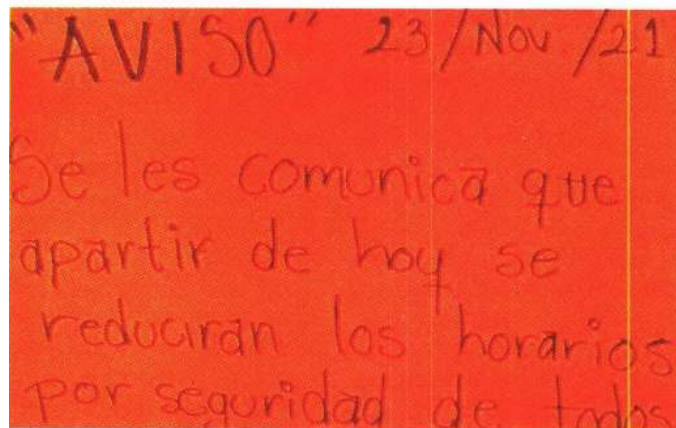 "AVISO" 23/Nov/21
Se les comunica que
apartir de hoy se
reduciran los horarios
por seguridad de todos